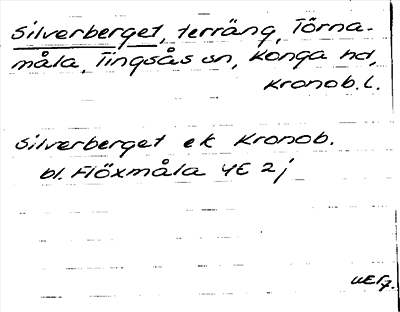 Silverberget, terräng, Törna-
måla, Tingsås sn, Konga hd,
Kronob. l.
Silverberget ek Kronob.
bl. Flöxmåla 4E 2j